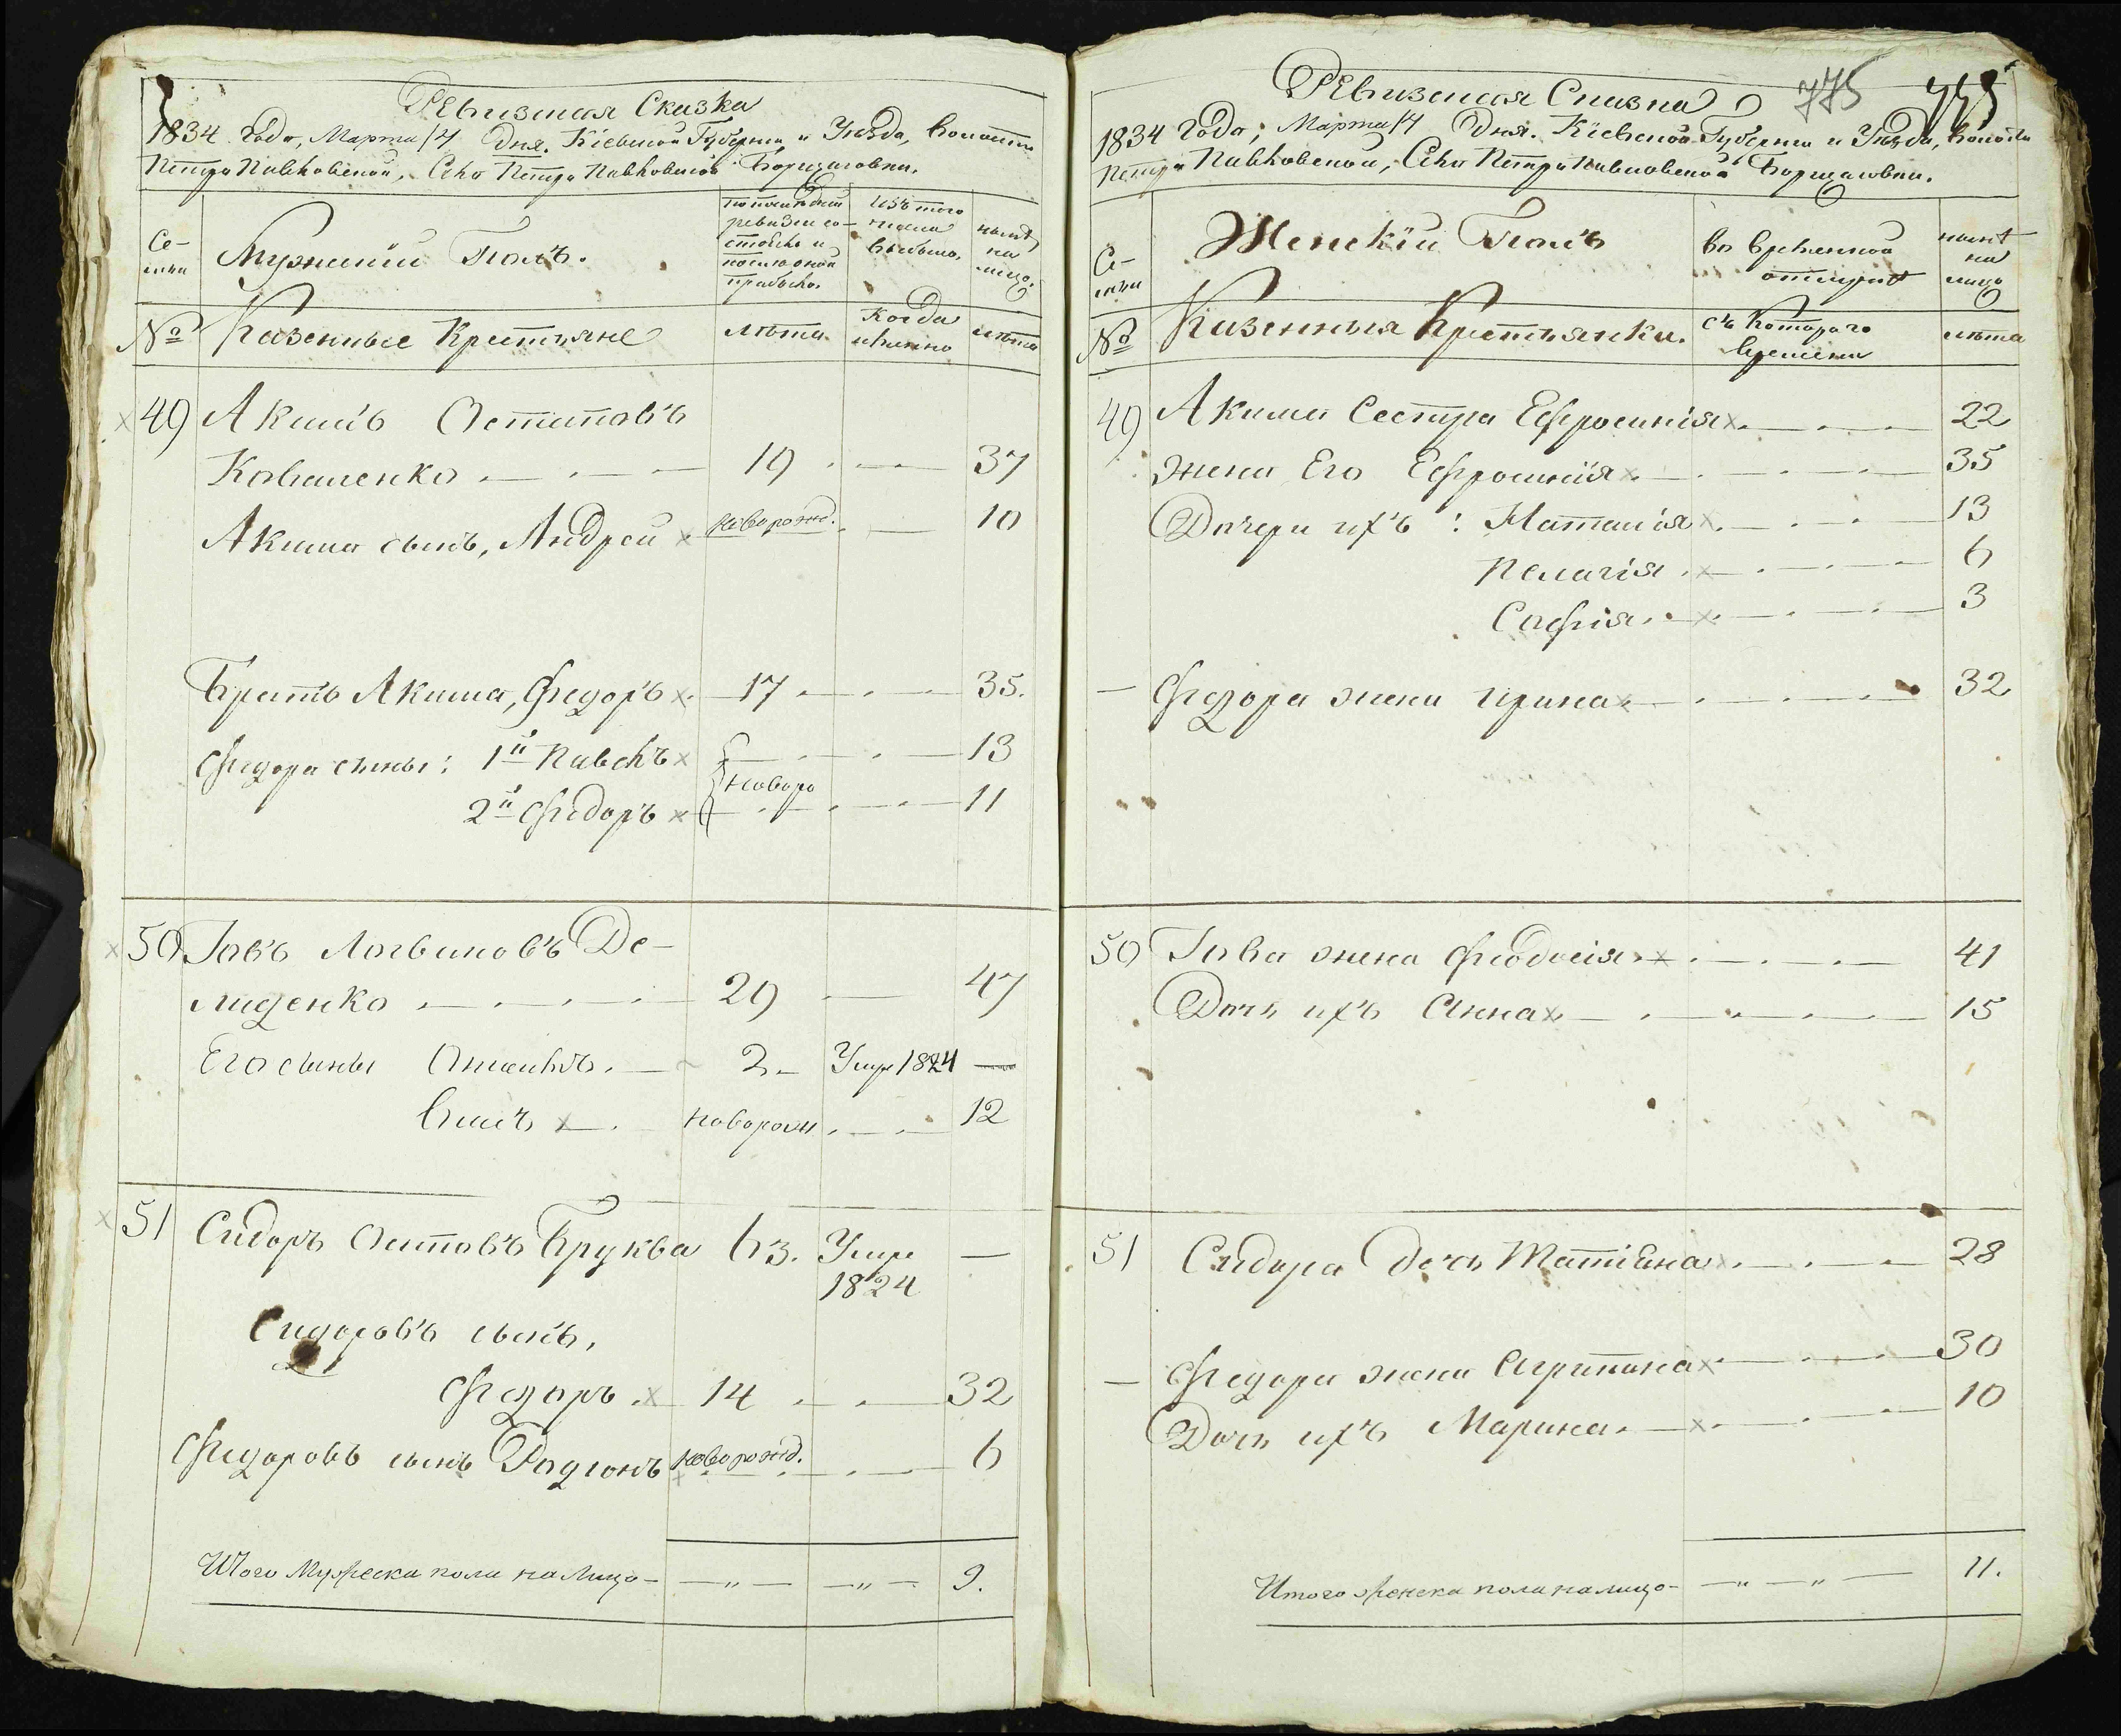 Ревизская Сказка
1834 Года, Марта 14 Дня. Кіевской Губерніи и Уѣзда, Волости
Петро Павловской, Села Петро Павловской Борщаговки.
Се-
мьи
Мужескій Полъ.
по послѣдней
ревизіи со-
стояло и
послѣ оной
прибыло.
Изъ того
числа
выбыло.
нынѣ
на
лицо.
№
Казенные Крестьяне
лѣта
Когда
именно
лѣта
49 Акимъ Остаповъ
Коваленко 19 37
Акима сынъ, Андрей новорожд. 10
Братъ Акима, Федоръ 17 35.
Федора сыны: 1й Павелъ 13
новоро
2й Федоръ 11
50 Іовъ Логвиновъ Де-
миденко 29 47
Его сыны 2 Умре 1824 —
новорож 12
51 Сидоръ Остаповъ Бруква 63. Умре —
1824
Сидоровъ сынъ,
Федоръ 14 32
Федоровъ сынъ Родіонъ новорожд. 6
Итого Мужеска пола на Лицо — — " — — " — 9.
Ревизская Сказка
775
775
1834 Года, Марта 14 Дня. Кіевской Губерніи и Уѣзда, Волости
Петро Павловской, Села Петро Павловской Борщаговки.
Се-
мьи
Женскій Полъ
во временной
отлучкѣ
нынѣ
на
лицо
№
Казенныя Крестьянки.
съ Котораго
времени
лѣта
49 Акима Сестра Ефросинія 22
Жена Его Ефросинія 35
Дочери ихъ: Наталія 13
Пелагія 6
Софія 3
— Федора жена Ирина 32
50 Іова жена Феодосія 41
Дочь ихъ Анна 15
51 Сидора Дочь Татіана 28
— Федора жена Агрипина 30
Дочь ихъ Марина 10
Итого женска пола на лицо — — " — " — 11.